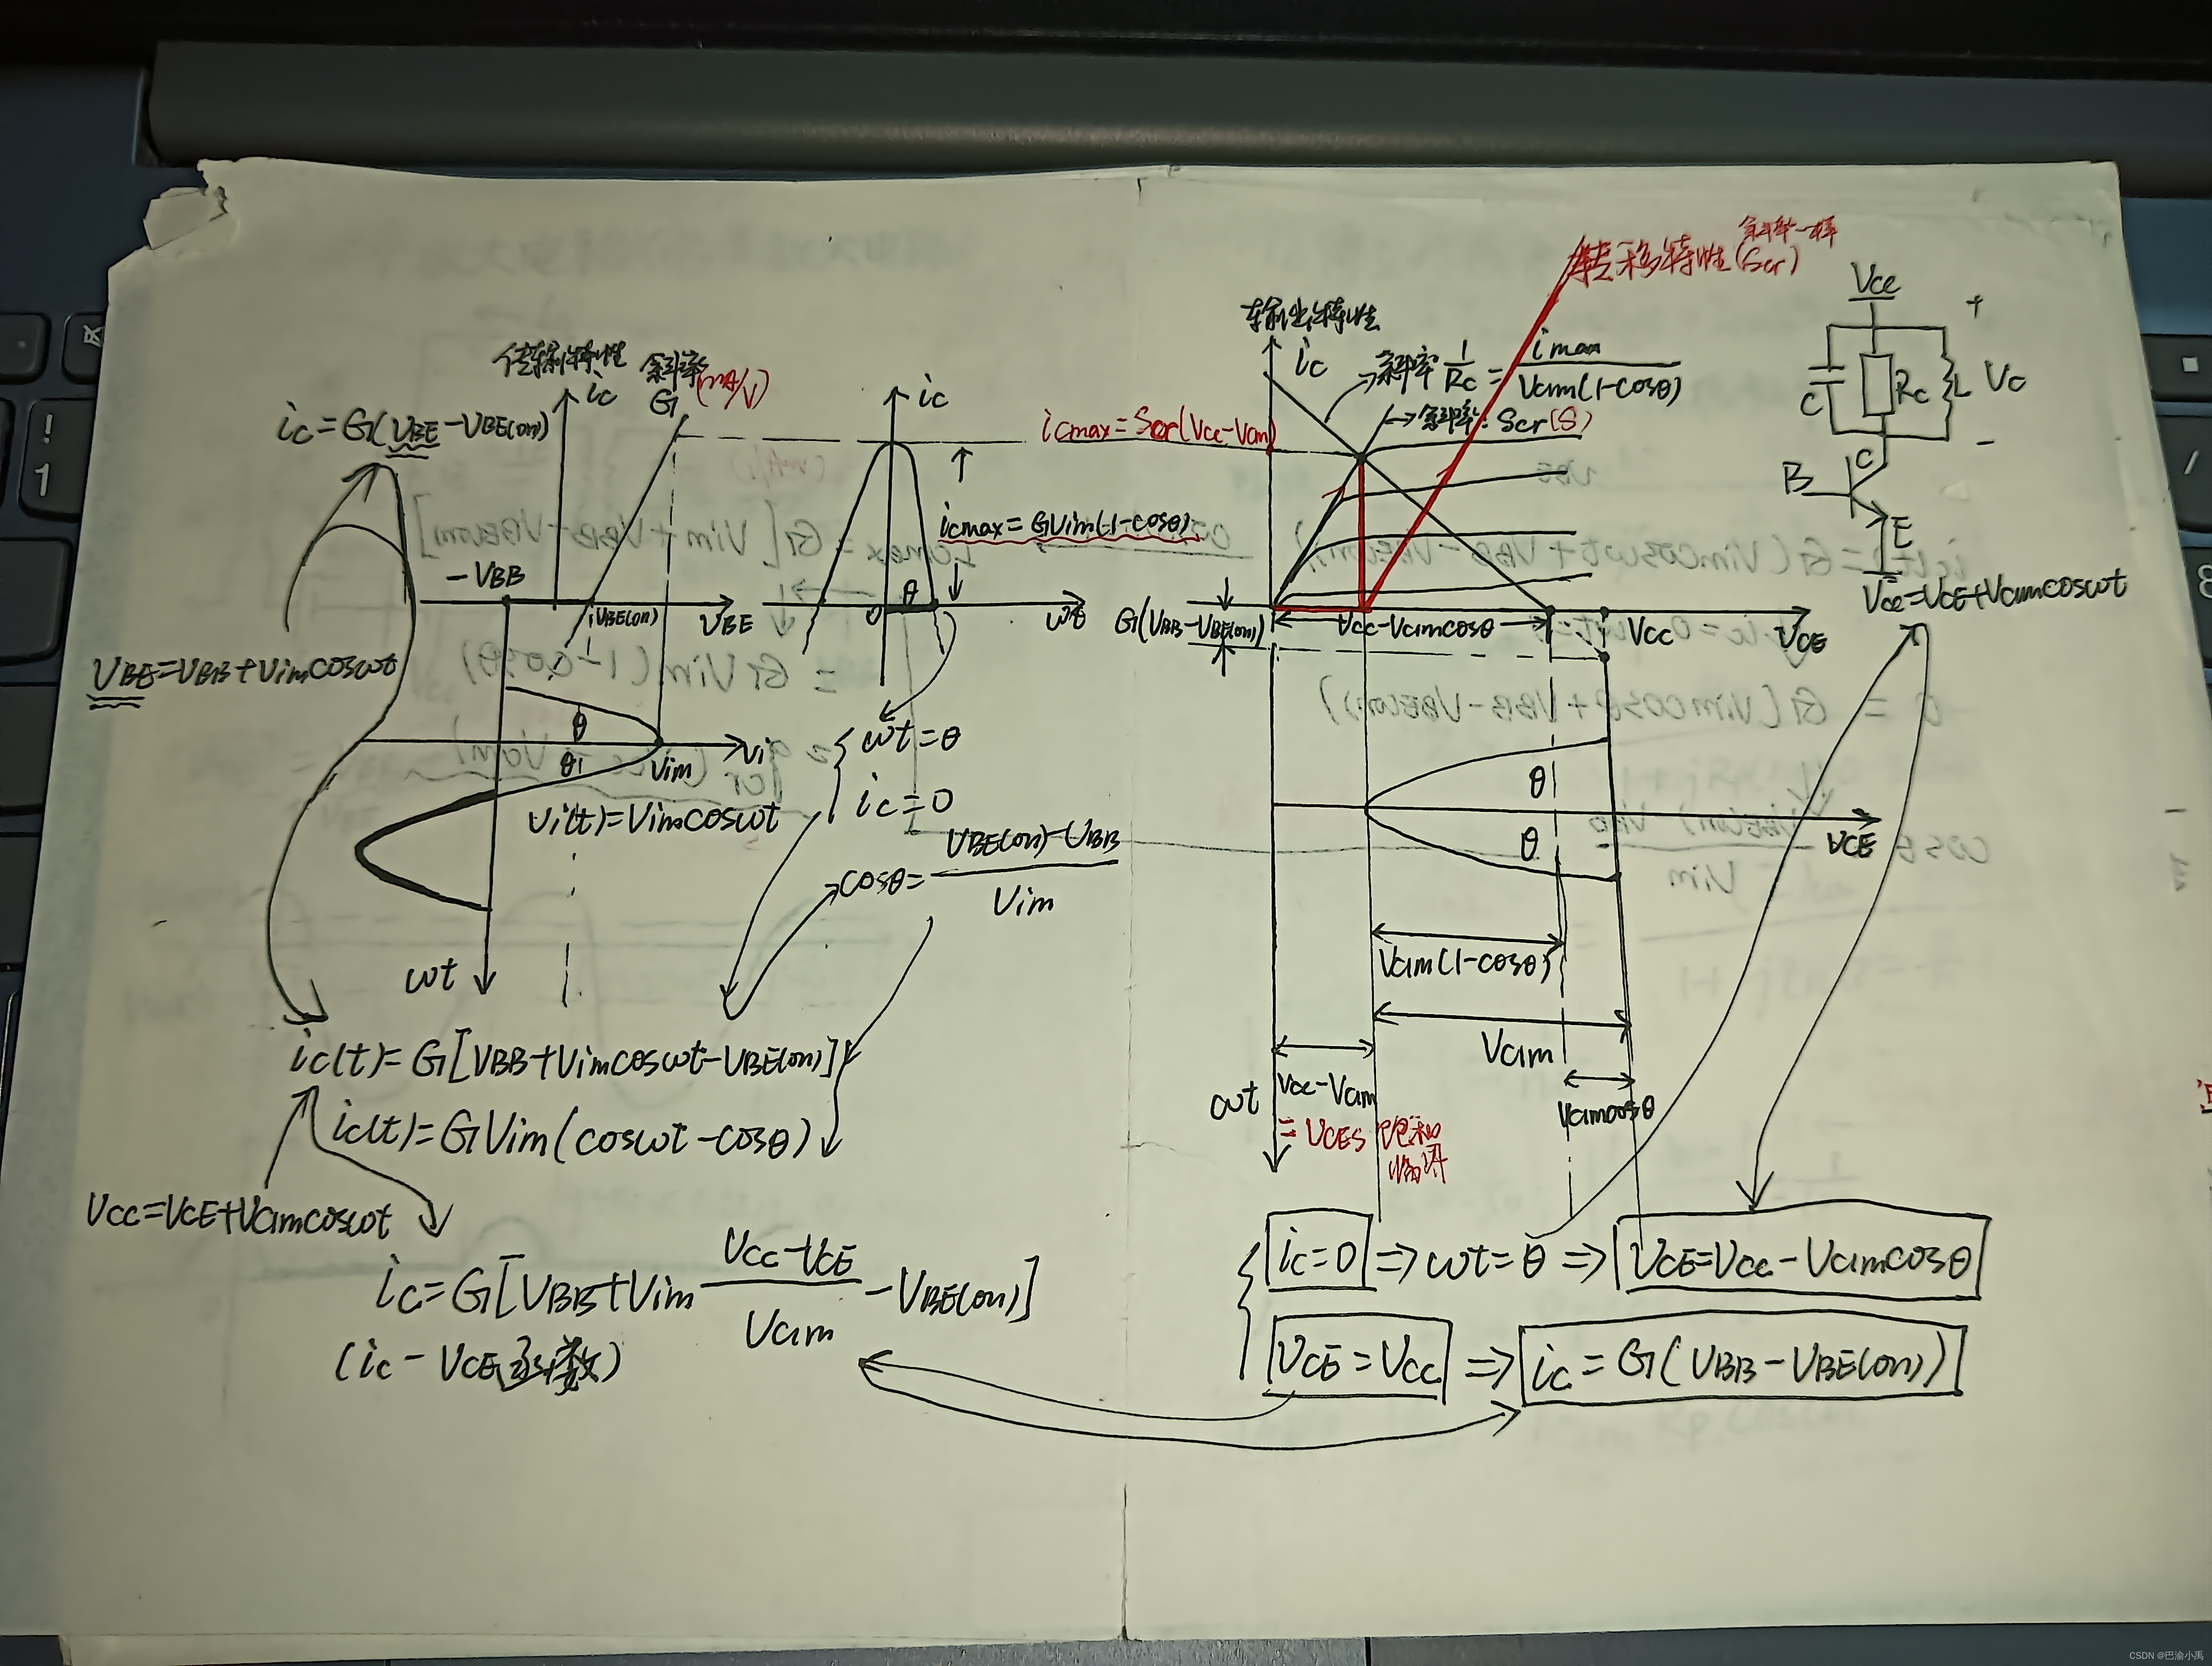 传输特性
斜率
G (mA/V)
ic
ic=G(VBE-VBE(on))
-VBB
VBE(on)
VBE
VBE=VBB+Vimcosωt
θ
θ
Vim
vi
vi(t)=Vimcosωt
ωt
ic
icmax=GVim(1-cosθ)
θ
0
ωt=θ
ic=0
cosθ=(VBE(on)-VBB)/Vim
ic(t)=G[VBB+Vimcosωt-VBE(on)]
ic(t)=GVim(cosωt-cosθ)
Vcc=VCE+Vcmcosωt
ic=G[VBB+Vim (Vcc-VCE)/Vcm -VBE(on)]
(ic-VCE函数)
输出特性
ic
斜率 1/Rc = imax/Vcm(1-cosθ)
斜率: Scr(S)
icmax=Scr(Vcc-Vcm)
转移特性(Scr)
斜率一样
G(VBB-VBE(on))
Vcc-Vcmcosθ
Vcc
VCE
θ
θ
VCE
Vcm(1-cosθ)
Vcm
Vcc-Vcm
Vcmcosθ
=VCES 饱和
临界
ωt
Vcc
+
C
Rc
L
Vc
-
C
B
E
Vcc=VCE+Vcmcosωt
ic=0 ⇒ ωt=θ ⇒ VCE=Vcc-Vcmcosθ
VCE=Vcc ⇒ ic=G(VBB-VBE(on))
!
1
CSDN @巴渝小禹